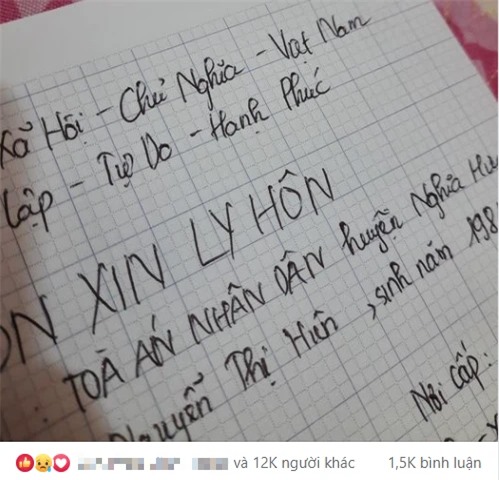 Xã Hội - Chủ Nghĩa - Vạt Nam
Lập - Tự Do - Hạnh Phúc
N XIN LY HÔN
TOÀ ÁN NHÂN DÂN huyện Nghĩa Hư
Nguyễn Thị Hiên, sinh năm 198
Nơi cấp:
và 12K người khác 1,5K bình luận